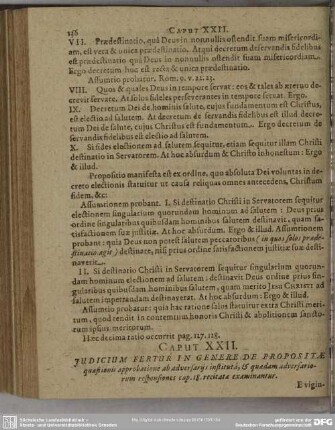 136 CAPUT XXII.
VII. Prædestinatio, quâ Deus in nonnullis ostendit suam misericordi-
am, est vera & unica prædestinatio. Atqui decretum de servandis fidelibus
est prædestinatio quâ Deus in nonnullis ostendit suam misericordiam.
Ergo decretum hoc est recta & unica prædestinatio.
Assumtio probatur. Rom. 9. v. 22. 23.
VIII. Quos & quales Deus in tempore servat: eos & tales ab æterno de-
crevit servare. At solos fideles perseverantes in tempore servat. Ergo.
IX. Decretum Dei de hominis salute, cujus fundamentum est Christus,
est electio ad salutem. At decretum de servandis fidelibus est illud decre-
tum Dei de salute, cujus Christus est fundamentum. Ergo decretum de
servandis fidelibus est electio ad salutem.
X. Si fides electionem ad salutem sequitur, etiam sequitur illam Christi
destinatio in Servatorem. At hoc absurdum & Christo inhonestum: Ergo
& illud.
Propositio manifesta est ex ordine, quo absoluta Dei voluntas in de-
creto electionis statuitur ut causa reliquas omnes antecedens, Christum
fidem, &c:
Assumtionem probant. I. Si destinatio Christi in Servatorem sequitur
electionem singularium quorundam hominum ad salutem: Deus prius
ordine singularibus quibusdam hominibus salutem destinavit, quam sa-
tisfactionem suæ justitiæ. At hoc absurdum. Ergo & illud. Assumtionem
probant: quia Deus non potest salutem peccatoribus (in quos solos præde-
stinatio agit) destinare, nisi prius ordine satisfactionem justitiæ suæ desti-
naverit.
II. Si destinatio Christi in Servatorem sequitur singularium quorun-
dam hominum electionem ad salutem: destinavit Deus ordine prius sin-
gularibus quibusdam hominibus salutem, quam merito JESU CHRISTI ad
salutem impetrandam destinaverat. At hoc absurdum: Ergo & illud.
Assumtio probatur: quia hac ratione salus statuitur extra Christi meri-
tum, quod tendit in contemtum honoris Christi & abolitionem sancto-
rum ipsius meritorum.
Hæc decima ratio occurrit pag. 127. 128.
CAPUT XXII.
JUDICIUM FERTUR IN GENERE DE PROPOSITÆ
quæstionis approbatione ab adversariis institutâ, & quædam adversario-
rum responsiones cap. 18. recitatæ examinantur.
Evigin-